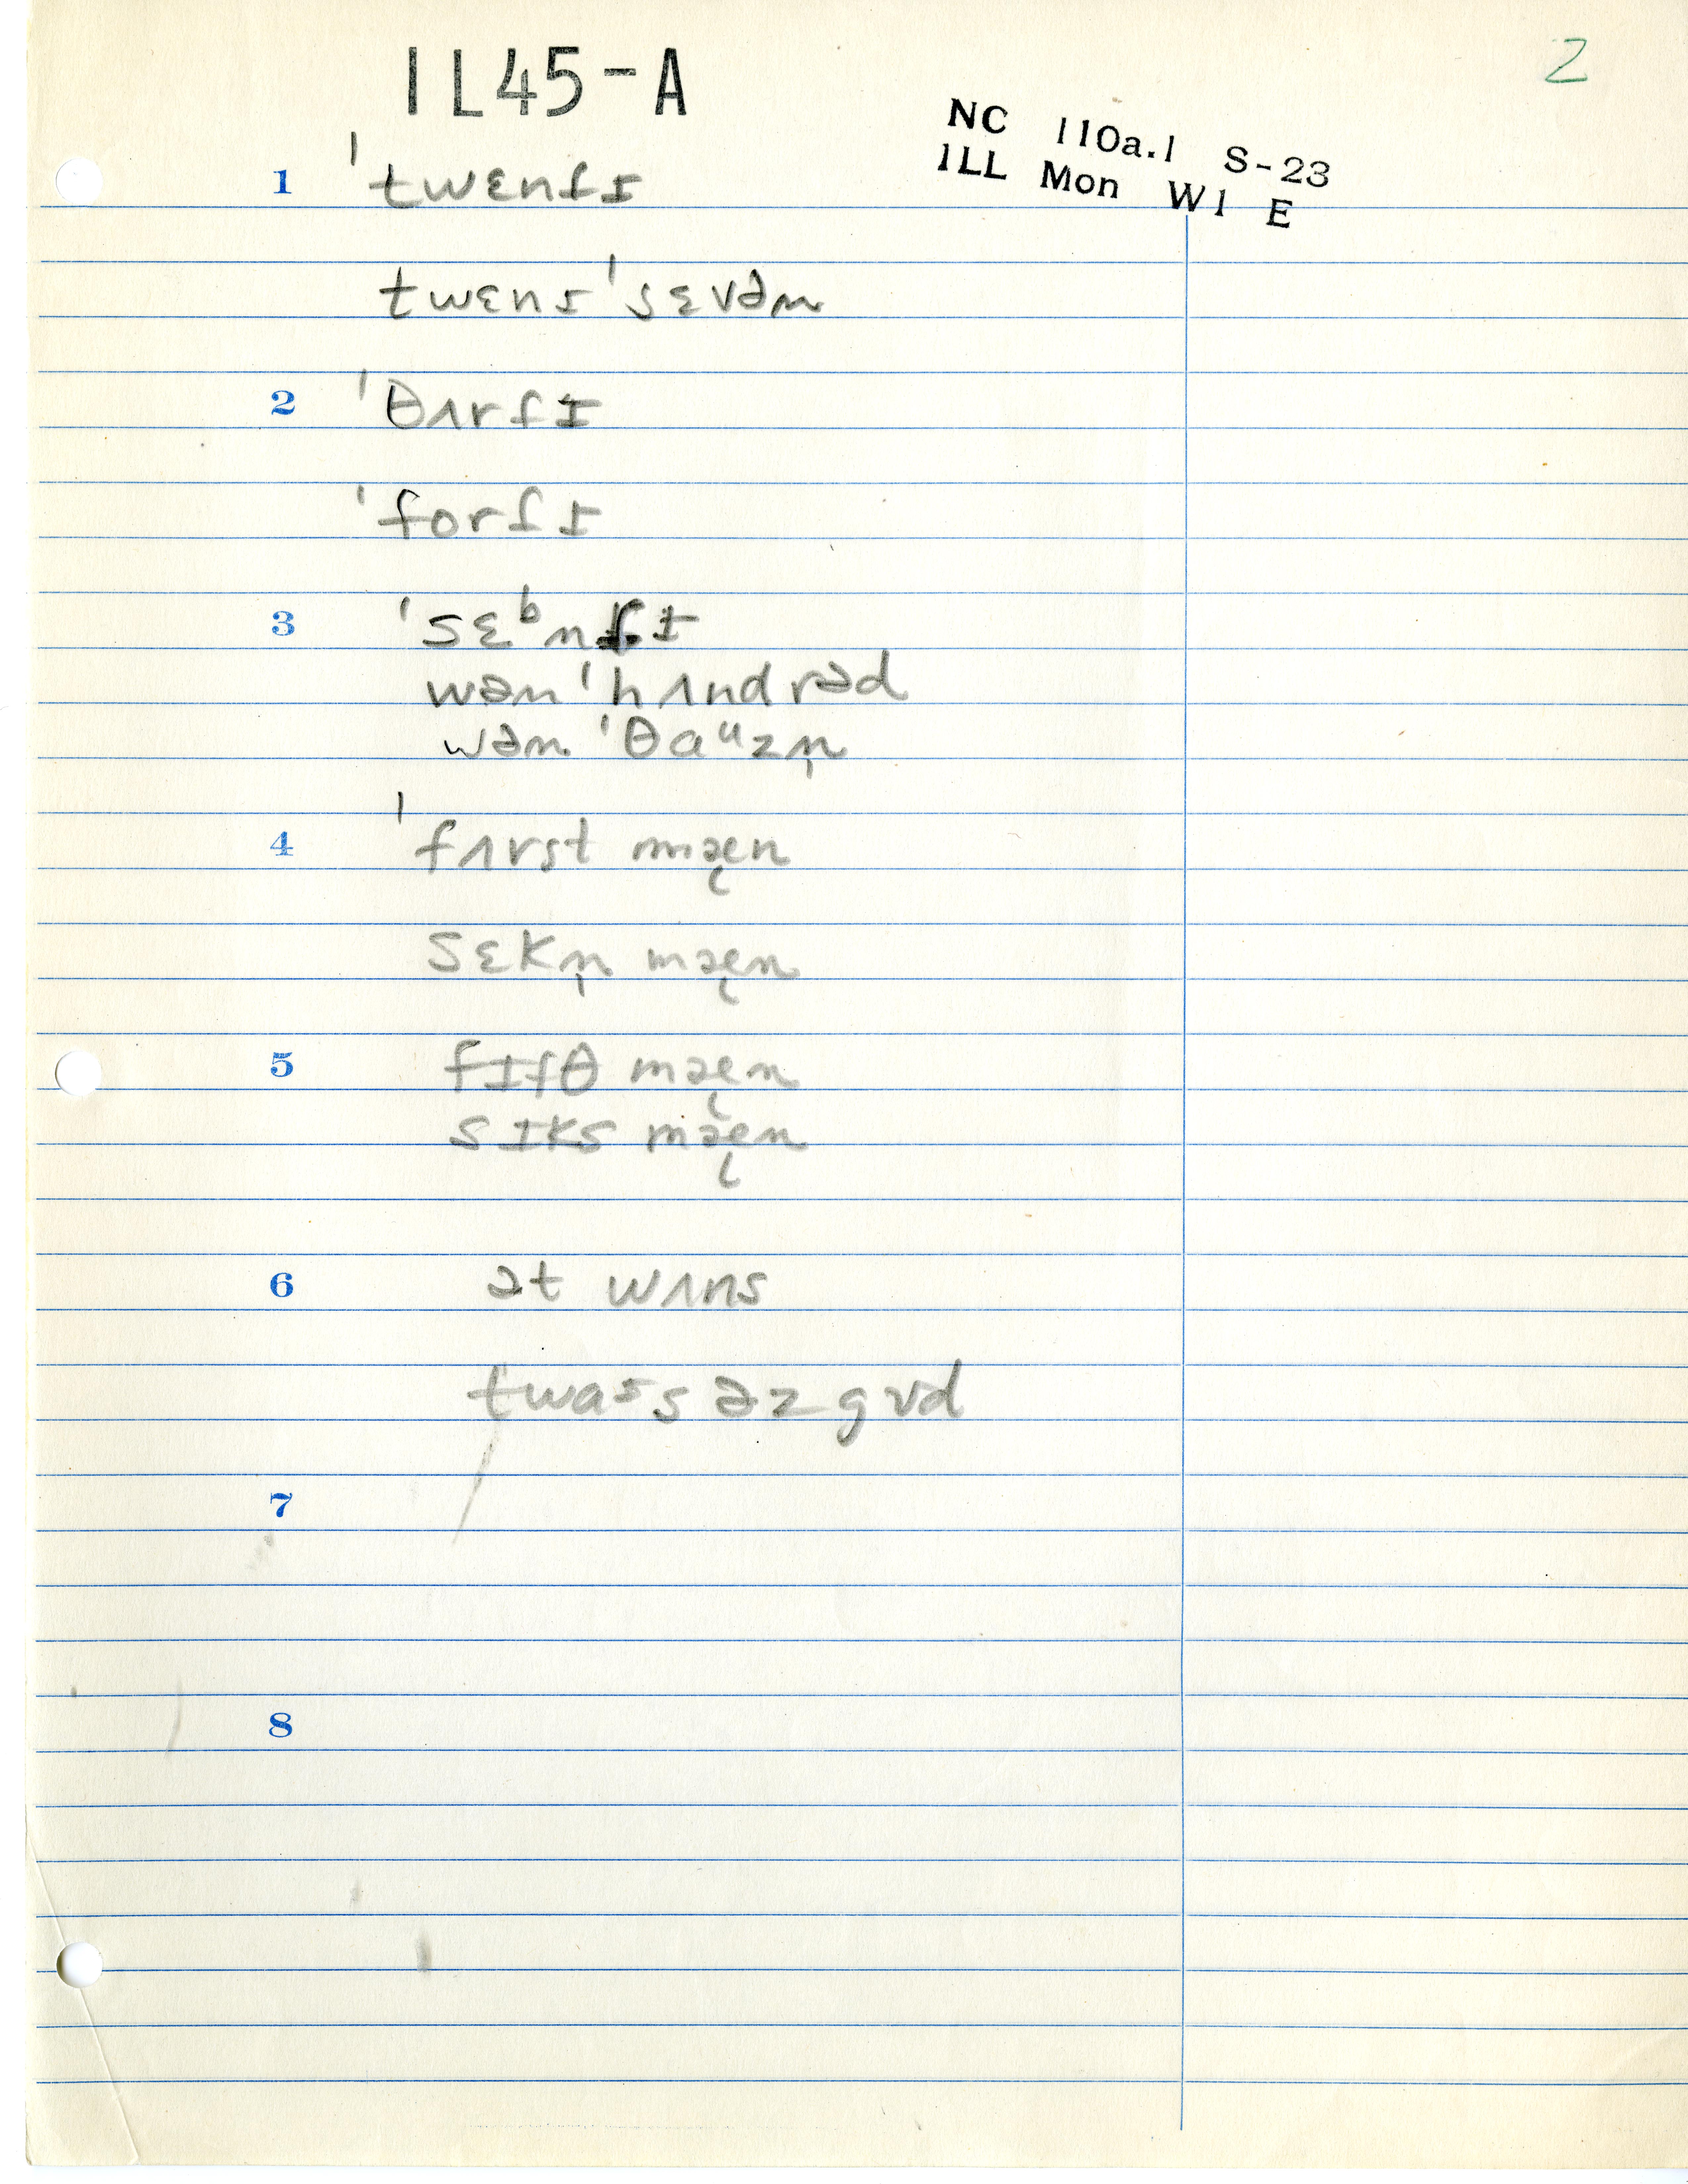 IL45-A
2
NC 110a.1 S-23
ILL Mon W1 E
1 ˈtwɛnɾɪ
twɛnɪˈsɛvən
2 ˈθʌrɾɪ
ˈforɾɪ
3 ˈsɛᵇmɾɪ
wənˈhʌndrəd
wənˈθaᵘzn̩
4 ˈfʌrst mæ̨n
sɛkn̩ mæ̨n
5 fɪfθ mæ̨n
sɪks mæ̨n
6 ət wʌns
twaᶦs əz gʊd
7
8